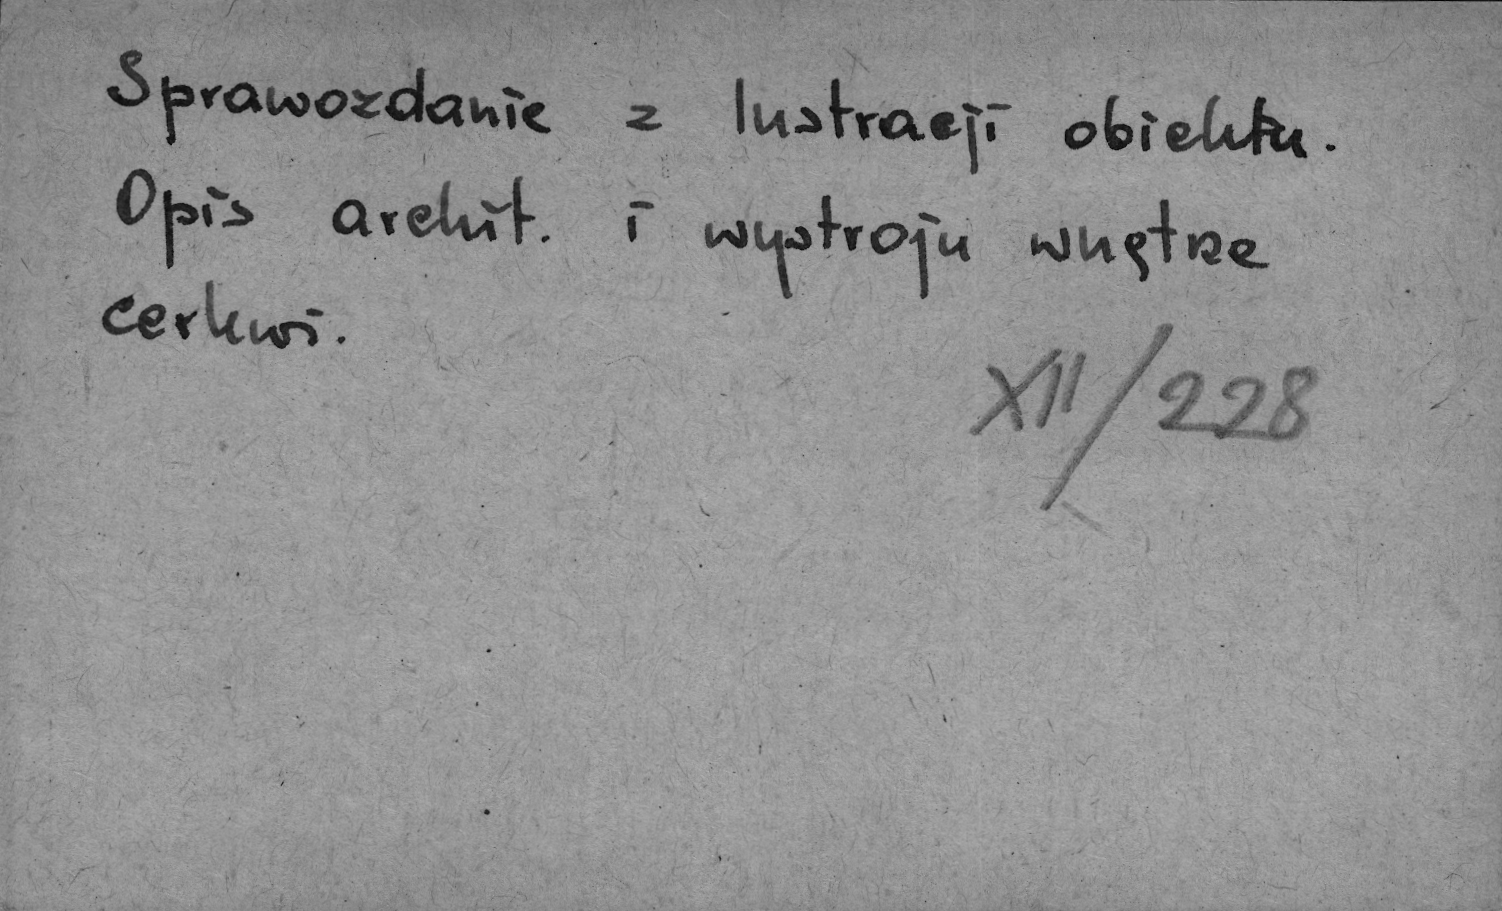 Sprawozdanie z lustracji obiektu.
Opis archit. i wystroju wnętrz
cerkwi.
XII/228